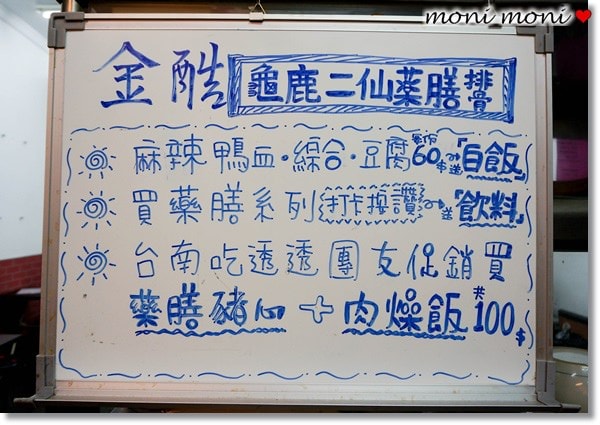 moni moni
金酷 龜鹿二仙藥膳排骨
麻辣鴨血·綜合·豆腐 60 送「白飯」
買藥膳系列 打卡按讚 送「飲料」
台南吃透透 團 友促銷買
藥膳豬心 + 肉燥飯 共100$